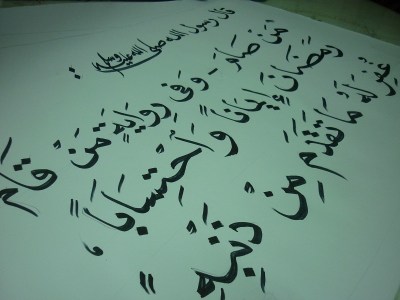 قال رسول الله صلى الله عليه وسلم :
مَنْ صَامَ - وَفِي رِوَايَةٍ مَنْ قَامَ
رَمَضَانَ إِيمَانًا وَاحْتِسَابًا ،
غُفِرَ لَهُ مَا تَقَدَّمَ مِنْ ذَنْبِهِ =